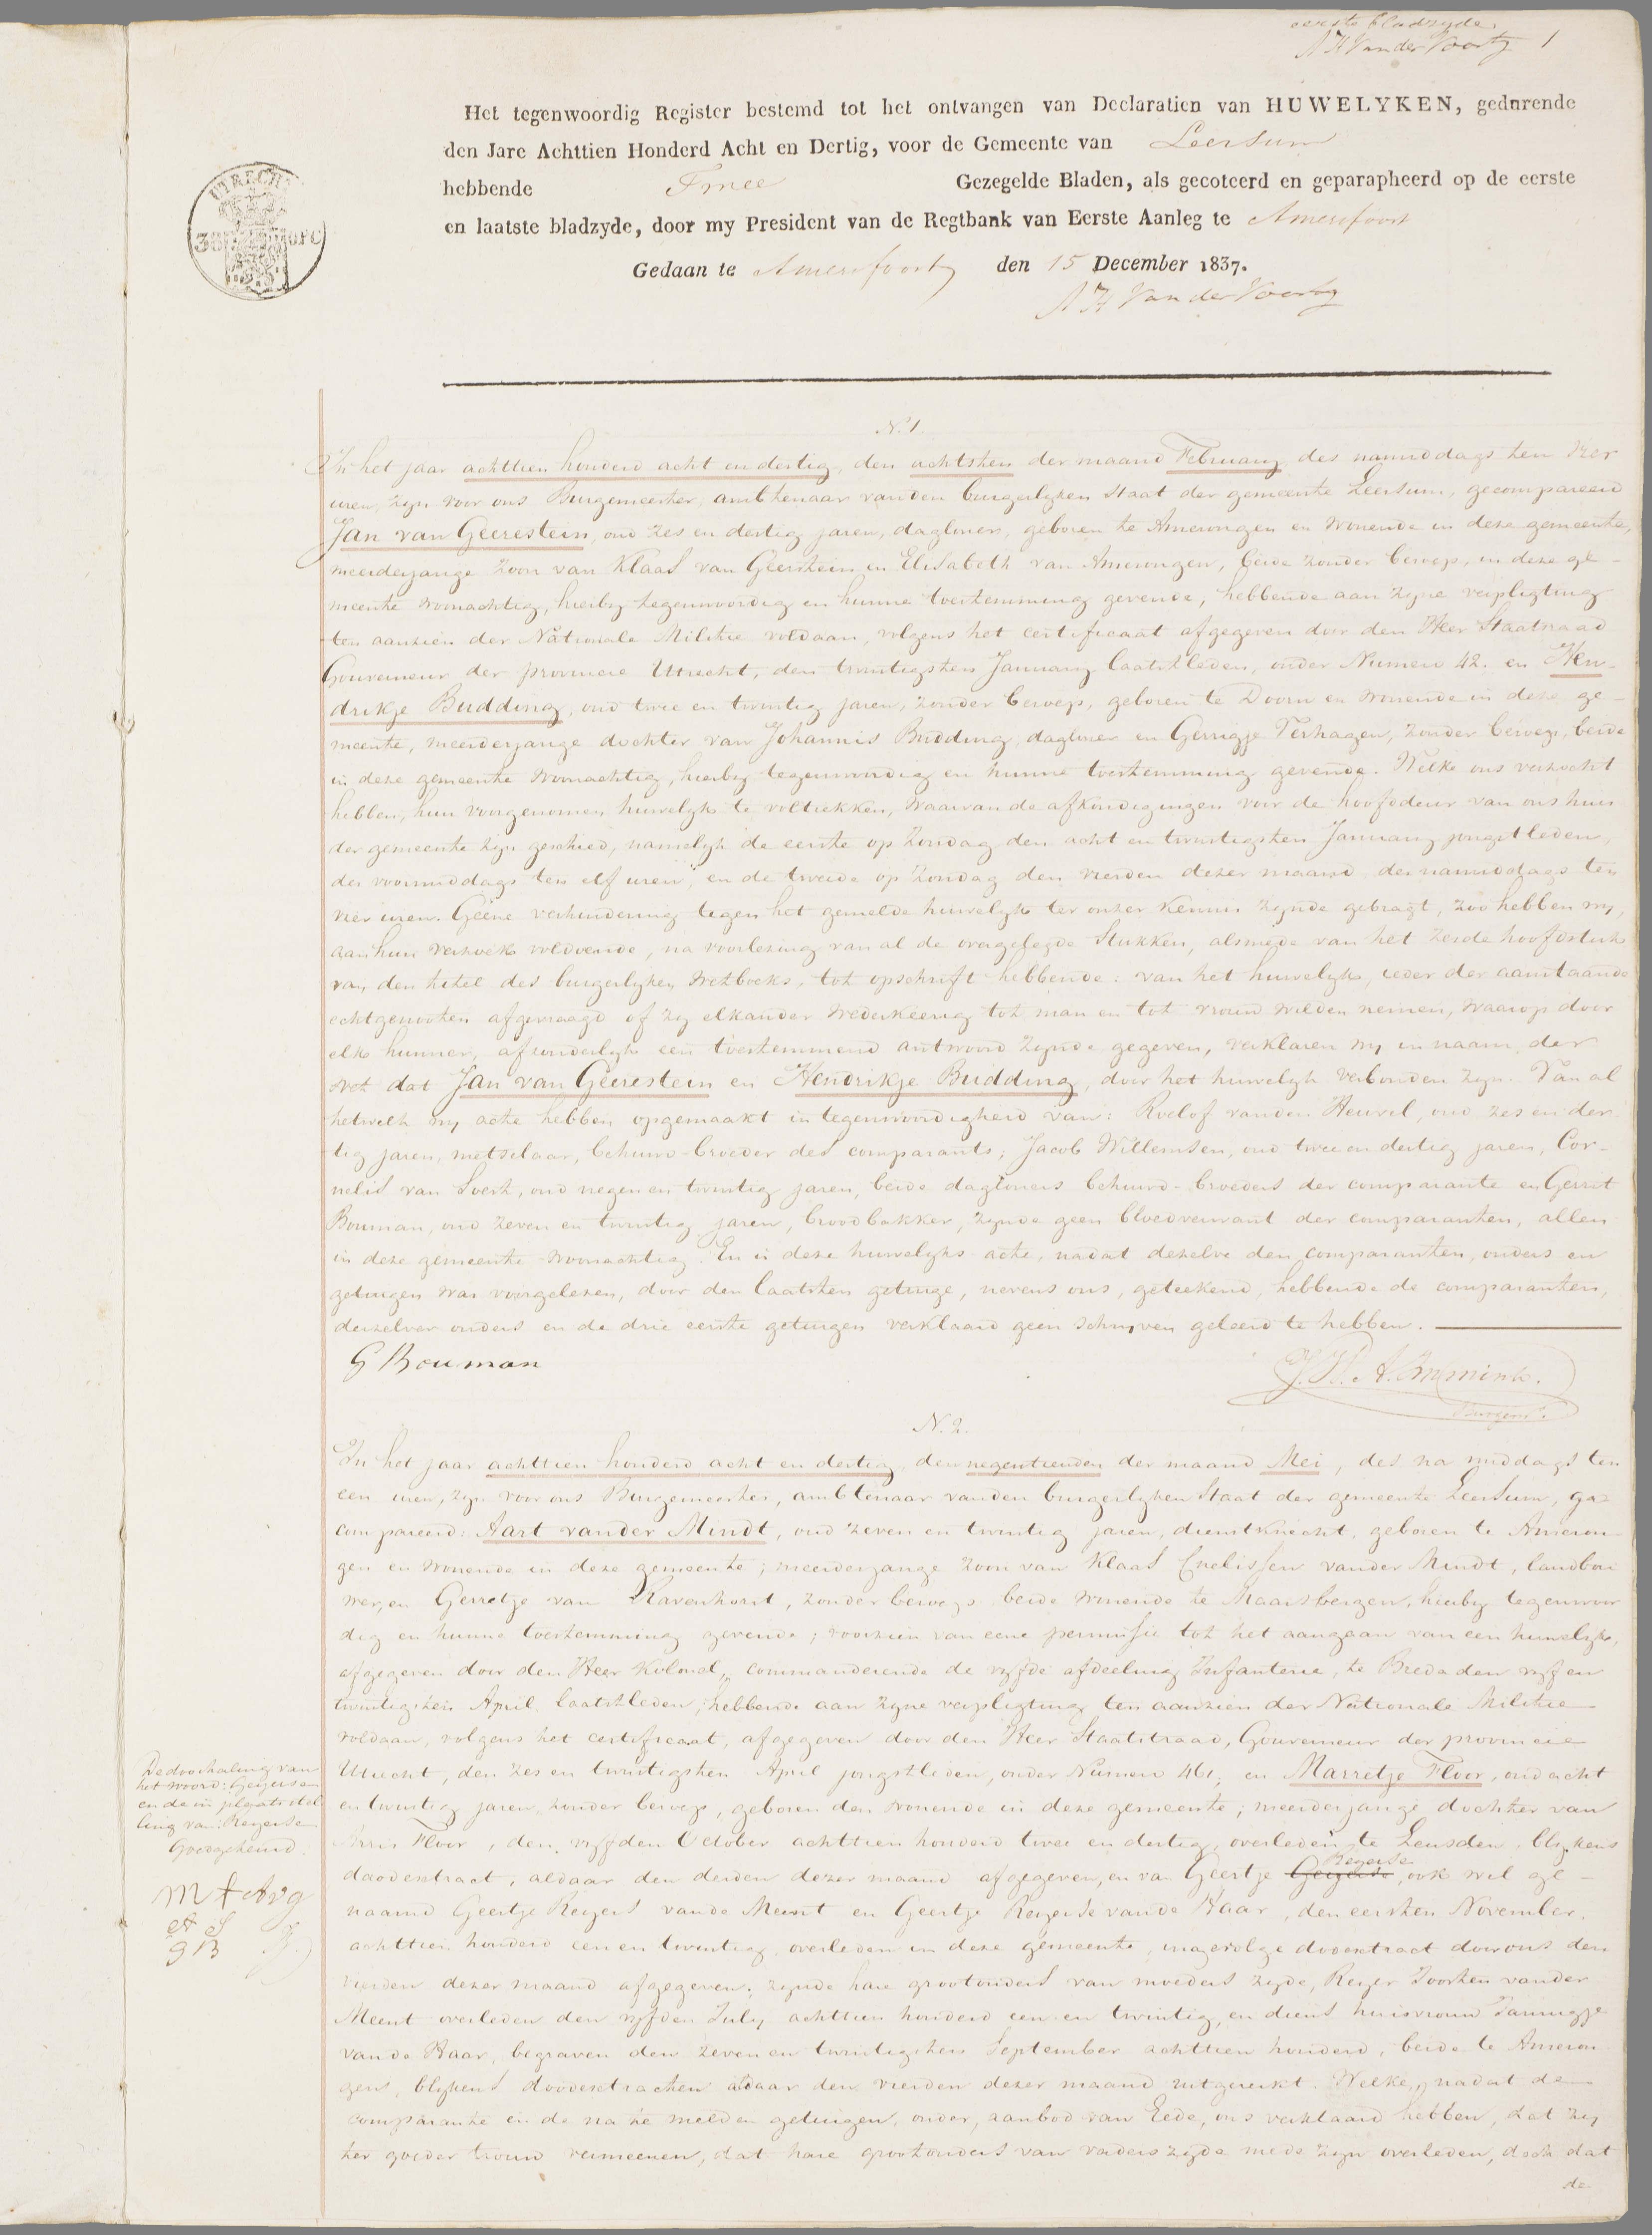 eerste bladzyde.
N H Van der Voort 1
Het tegenwoordig Register bestemd tot het ontvangen van Declaratien van HUWELYKEN, gedurende
den Jare Achttien Honderd Acht en Dertig, voor de Gemeente van Leersum
hebbende Twee Gezegelde Bladen, als gecoteerd en geparapheerd op de eerste
en laatste bladzyde, door my President van de Regtbank van Eerste Aanleg te Amersfoort
Gedaan te Amersfoort den 15 December 1837.
N H Van der Voort
UTRECHT
N.1.
In het jaar achttien honderd acht en dertig, den achtsten der maand February des namiddags ten vier
uren, zyn voor ons Burgemeester, ambtenaar van den burgerlyken staat der gemeente Leersum, gecompareerd
Jan van Geerestein, oud zes en dertig jaren, dagloner, geboren te Amerongen en wonende in deze gemeente,
meerderjange zoon van Klaas van Geerstein en Elisabeth van Amerongen, beide zonder beroep, in deze ge-
meente woonachtig, hierby tegenwoordig en hunne toestemming gevende, hebbende aan zyne verpligting
ten aanzien der Nationale Militie voldaan, volgens het certificaat afgegeven door den Heer Staatsraad
Gouverneur der provincie Utrecht, den twintigsten January laatstleden, onder Numero 42; en Hen-
drikje Budding, oud twee en twintig jaren, zonder beroep, geboren te Doorn en wonende in deze ge-
meente, meerderjange dochter van Johannis Budding, dagloner en Gerrigje Terhagen, zonder beroep, beide
in deze gemeente woonachtig, hierby tegenwoordig en hunne toestemming gevende. Welke ons verzocht
hebben, hun voorgenomen huwelyk te voltrekken, waarvan de afkondigingen voor de hoofddeur van ons huis
der gemeente zyn geschied, namelyk de eerste op Zondag den acht en twintigsten January jongstleden,
des voormiddags ten elf uren, en de tweede op Zondag den vierden dezer maand, des namiddags ten
vier uren. Geene verhindering tegen het gemelde huwelyk ter onzer kennis zynde gebragt, zoo hebben wy,
aan hun verzoek voldoende, na voorlezing van al de overgelegde stukken, alsmede van het zesde hoofdstuk
van den titel des burgerlyken wetboeks, tot opschrift hebbende: van het huwelyk, ieder der aanstaande
echtgenooten afgevraagd of zy elkander wederkeerig tot man en tot vrouw wilden nemen, waarop door
elk hunner, afzonderlyk een toestemmend antwoord zynde gegeven, verklaren wy in naam der
wet dat Jan van Geerestein en Hendrikje Budding, door het huwelyk verbonden zyn. Van al
hetwelk wy acte hebben opgemaakt in tegenwoordigheid van: Roelof van den Heuvel, oud zes en der-
tig jaren, metselaar, behuwd-broeder des comparants; Jacob Willemsen, oud twee en dertig jaren, Cor-
nelis van Soest, oud negen en twintig jaren, beide dagloners behuwd-broeders der comparante en Gerrit
Bouman, oud zeven en twintig jaren, broodbakker, zynde geen bloedverwant der comparanten, allen
in deze gemeente woonachtig. En is deze huwelyks acte, nadat dezelve den comparanten, ouders en
getuigen was voorgelezen, door den laatsten getuige, nevens ons, geteekend, hebbende de comparanten,
derzelver ouders en de drie eerste getuigen verklaard geen schryven geleerd te hebben.
G Bouman
Burgem.
N.2.
In het jaar achttien honderd acht en dertig, den negentienden der maand Mei, des na middags ten
een uren, zyn voor ons Burgemeester, ambtenaar van den burgerlyken Staat der gemeente Leersum, ge-
compareerd: Aart van der Mindt, oud zeven en twintig jaren, dienstknecht, geboren te Ameron-
gen en wonende in deze gemeente; meerderjange zoon van Klaas Cnelissen van der Mindt, landbou
wer, en Gerretje van Ravenhorst, zonder beroep beide wonende te Maarsbergen, hierby tegenwoor
dig en hunne toestemming gevende; voorzien van eene permissie tot het aangaan van een huwelyk,
afgegeven door den Heer Kolonel, commanderende de vyfde afdeeling Infanterie, te Breda den vyf en
twintigsten April laatstleden; hebbende aan zyne verpligting ten aanzien der Nationale Militie
voldaan, volgens het certificaat, afgegeven door den Heer Staatsraad, Gouverneur der provincie
Utrecht, den zes en twintigsten April jongstleden, onder Numero 461; en Marretje Floor, oud acht
en twintig jaren, zonder beroep, geboren den wonende in deze gemeente; meerderjange dochter van
Floor, den vyfden October achttien honderd twee en dertig, overleden te Leusden, blykens
doodextract, aldaar den derden dezer maand afgegeven, en van Geertje Reyerse ook wel ge-
naamd Geertje Reyers van de Meent en Geertje Reyerse van de Haar, den eersten November
achttien honderd een en twintig, overleden in deze gemeente, ingevolge doodextract door ons den
vierden dezer maand afgegeven; zynde hare grootouders van moeders zyde, Reyer Joosten van der
Meent overleden den vyfden July achttien honderd een en twintig, en diens huisvrouw Jannigje
van de Haar, begraven den zeven en twintigsten September achttien honderd, beide te Ameron
gen, blykens doodextracten aldaar den vierden dezer maand uitgereikt. Welke, nadat de
comparante en de na te melden getuigen, onder aanbod van Eede, ons verklaard hebben, dat zy
ter goeder trouw vermeenen, dat hare grootouders van vaders zyde mede zyn overleden, doch dat
de
De doorhaling van
het woord: Geyersen
en de in plaats stel
ling van: Reyerse
Goedgekeurd.
GB